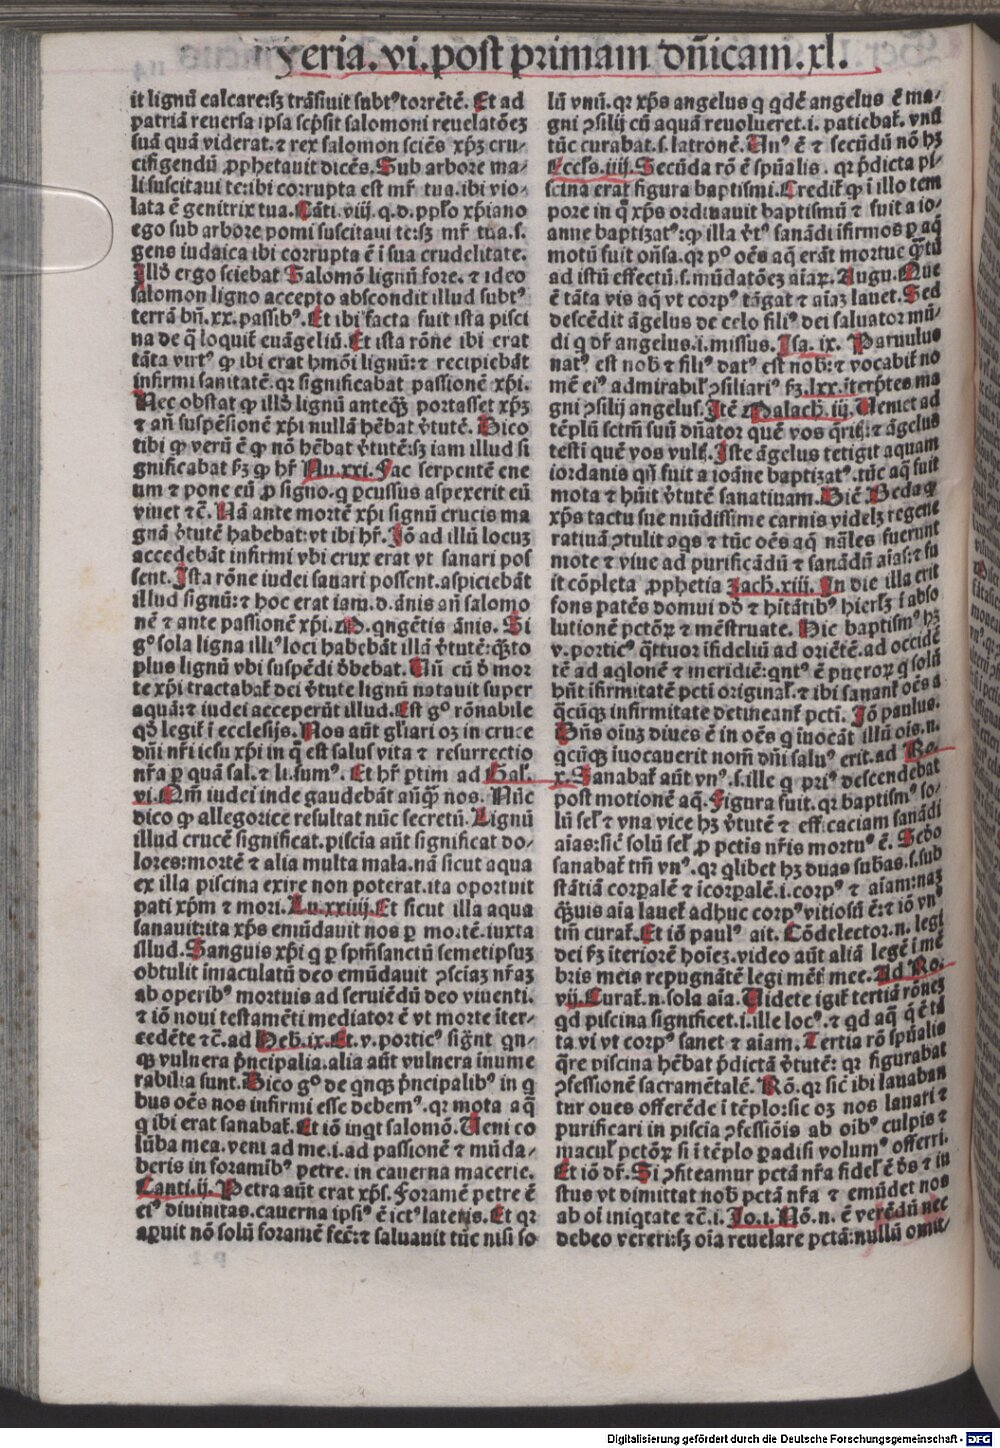 Feria.vi.post primam dñicam.xl.
it lignũ calcare:sꝫ trãsiuit subtꝰ torrẽtẽ. Et ad
patriã reuersa ipsa scp̃sit salomoni reuelatõeꝫ
suã quã viderat.⁊ rex salomon sciẽs xp̃ꝫ cru-
cifigendũ ꝓphetauit dicẽs. Sub arbore ma-
li suscitaui te:ibi corrupta est mr̃ tua.ibi vio-
lata ẽ genitrix tua. Cãti.viij.q.d.pp̃lo xp̃iano
ego sub arbore pomi suscitaui te:sꝫ mr̃ tua.s.
gens iudaica ibi corrupta ẽ i sua crudelitate.
Illđ ergo sciebat Salomõ lignũ fore.⁊ ideo
salomon ligno accepto abscondit illud subtꝰ
terrã bñ.xx.passibꝰ. Et ibi facta fuit ista pisci
na de q̃ loquit̃ euãgeliũ. Et ista rõne ibi erat
tãta virtꝰ ꝙ ibi erat hmõi lignũ:⁊ recipiebãt
infirmi sanitatẽ.qꝛ significabat passionẽ xp̃i.
Nec obstat ꝙ illđ lignũ anteq̃ꝫ portasset xp̃ꝫ
⁊ añ suspẽsionẽ xp̃i nullã hẽbat v̾tutẽ. Dico
tibi ꝙ verũ ẽ ꝙ nõ hẽbat v̾tutẽ:sꝫ iam illud si
gnificabat ẜꝫ ꝙ hr̃ Nu.xxi. Fac serpentẽ ene
um ⁊ pone eũ ꝓ signo.q ꝑcussus aspexerit eũ
viuet ⁊c̃. Nã ante mortẽ xp̃i signũ crucis ma
gnã v̾tutẽ habebat:vt ibi hr̃. Iõ ad illũ locuꝫ
accedebãt infirmi vbi crux erat vt sanari pos
sent. Ista rõne iudei sanari possent.aspiciebãt
illud signũ:⁊ hoc erat iam.d.ãnis añ salomo
nẽ ⁊ ante passionẽ xp̃i.M.qngẽtis ãnis. Si
gͦ sola ligna illiꝰ loci habebãt illã v̾tutẽ:q̃ꝫto
plus lignũ vbi suspẽdi đbebat. Uñ cũ đ mor
te xp̃i tractabat̃ dei v̾tute lignũ natauit super
aquã:⁊ iudei acceperũt illud. Est gͦ rõnabile
qđ legit̃ i ecclesijs. Nos aũt gl̃iari oꝫ in cruce
dñi nr̃i iesu xp̃i in q̃ est salus vita ⁊ resurrectio
nr̃a ꝑ quã sal.⁊ li.sumꝰ. Et hr̃ ꝑtim ad Gal̃.
vi. Nm̃ iudei inde gaudebãt añq̃ꝫ nos. Nũc
dico ꝙ allegorice resultat nũc secretũ. Lignũ
illud crucẽ significat.piscia aũt significat do-
lores:mortẽ ⁊ alia multa mala.nã sicut aqua
ex illa piscina exire non poterat.ita oportuit
pati xp̃m ⁊ mori. Lu.xxiiij. Et sicut illa aqua
sanauit:ita xp̃s emũdauit nos ꝑ mortẽ.iuxta
illud. Sanguis xp̃i q ꝑ sp̃m̃sanctũ semetipsuꝫ
obtulit imaculatũ deo emũdauit ꝯsciaꝫ nr̃aꝫ
ab operibꝰ mortuis ad seruiẽdũ deo viuenti.
⁊ iõ noui testamẽti mediator ẽ vt morte iter-
cedẽte ⁊c̃.ad Heb̃.ix. Et.v.porticꝰ sign̾t qn-
qꝫ vulnera p̾ncipalia.alia aũt vulnera inume
rabilia sunt. Dico gͦ de qnqꝫ p̾ncipalibꝰ in q
bus oẽs nos infirmi esse debemꝰ.qꝛ mota aq̃
q ibi erat sanabat̃. Et iõ inqt salomõ. Ueni co
lũba mea.veni ad me.i.ad passionẽ ⁊ mũda-
beris in foramĩbꝰ petre.in cauerna macerie.
Canti.ij. Petra aũt erat xp̃s. Foramẽ petre ẽ
eiꝰ diuinitas.cauerna ipsiꝰ ẽ ictꝰ lateris. Et qꝛ
aꝑuit nõ solũ foramẽ fec̃:⁊ saluauit tũc nisi so
lũ vnũ.qꝛ xp̃s angelus q qdẽ angelus ẽ ma-
gni ꝯsilij cũ aquã reuolueret.i.patiebat̃.vnũ
tũc curabat.s.latronẽ. Unꝰ ẽ ⁊ secũdũ nõ hꝫ
Eccl̃s.iiij. Secũda rõ ẽ sp̃ualis.qꝛ p̾dicta pi-
scina erat figura baptismi. Credit̃ ꝙ i illo tem
pore in q̃ xp̃s ordinauit baptismũ ⁊ fuit a io-
anne baptiꝫatꝰ:ꝙ illa v̾tꝰ sanãdi ifirmos ꝑ aq̃
motũ fuit oñsa.qꝛ pͦ oẽs aq̃ erãt mortue q̃ꝫtũ
ad istũ effectũ.s.mũdatõeꝫ aiaꝝ. Augu. Nũc
ẽ tãta vis aq̃ vt corpꝰ tãgat ⁊ aiaꝫ lauet. Sed
descẽdit ãgelus de celo filiꝰ dei saluator mũ-
di q dr̃ angelus.i.missus. Isa.ix. Paruulus
natꝰ est nob̃ ⁊ filiꝰ datꝰ est nob̃:⁊ vocabit̃ no
mẽ eiꝰ admirabil̃ ꝯsiliariꝰ ẜꝫ.lxx.iterp̃tes ma
gni ꝯsilij angelus. Itẽ Malach.iij. Ueniet ad
tẽplũ sctm̃ suũ dñator quẽ vos q̃rit̃:⁊ ãgelus
testi quẽ vos vult̃. Iste ãgelus tetigit aquam
iordanis qñ fuit a ioãne baptizatꝰ.tũc aq̃ fuit
mota ⁊ hũit v̾tutẽ sanatiuam. Diẽ. Beda ꝙ
xp̃s tactu sue mũdissime carnis videlꝫ regene
ratiuã ꝯtulit aq̃s ⁊ tũc oẽs aq̃ nãles fuerunt
mote ⁊ viue ad purificãdũ ⁊ sanãdũ aĩas:⁊ fu
it cõpleta ꝓphetia Zach.xiii. In die illa erit
fons patẽs domui dđ ⁊ hĩtãtibꝰ hierlꝫ i abso
lutionẽ pctõꝝ ⁊ mẽstruate. Hic baptismꝰ hꝫ
v.porticꝰ q̃ttuor ifideliũ ad oriẽtẽ.ad occidẽ
tẽ ad aqlonẽ ⁊ meridiẽ:qntꝰ ẽ pueroꝝ q solũ
hñt ifirmitatẽ pcti original̃.⁊ ibi sanant̃ oẽs a
q̃cũqꝫ infirmitate detineant̃ pcti. Iõ paulus.
Dñs oiuꝫ diues ẽ in oẽs q iuocãt illũ ois.n.
qcũqꝫ iuocauerit nom̃ dñi saluꝰ erit.ad Ro.
x. Sanabat̃ aũt vnꝰ.s.ille q priꝰ descendebat
post motionẽ aq̃. Figura fuit.qꝛ baptismꝰ so-
lũ sel̃ ⁊ vna vice hꝫ v̾tutẽ ⁊ efficaciam sanãdi
aĩas:sic̃ solũ sel̃ ꝓ pctis nr̃is mortuꝰ ẽ. Scđo
sanabat̃ tm̃ vnꝰ.qꝛ qlibet hꝫ duas subas.s.sub
stãtiã corꝑalẽ ⁊ icorꝑalẽ.i.corpꝰ ⁊ aĩam:naꝫ
q̃ꝫuis aĩa lauet̃ adhuc corpꝰ vitiosũ ẽ:⁊ iõ vnꝰ
tm̃ curat̃. Et iõ paulꝰ ait. Cõdelector.n.legi
dei ẜꝫ iteriorẽ hoieꝫ.video aũt aliã legẽ i mẽ
bris meis repugnãtẽ legi mẽti mee. Ad Ro.
vij. Curat̃.n.sola aĩa. Uidete igit̃ tertiã rõneꝫ
qd piscina significet.i.ille locꝰ.⁊ qd aq̃ q̃ ẽ tã
ta vi vt corpꝰ sanet ⁊ aĩam. Tertia rõ sp̃ualis
q̃re piscina hẽbat p̾dictã v̾tutẽ: qꝛ figurabat
ꝯfessionẽ sacramẽtalẽ. Rõ.qꝛ sic̃ ibi lauaban
tur oues offerẽde i tẽplo:sic oꝫ nos lauari ⁊
purificari in piscia ꝯfessiõis ab oibꝰ culpis ⁊
macul̃ pctõꝝ si i tẽplo ꝑadisi volumꝰ offerri.
Et iõ dr̃. Si ꝯfiteamur pctã nr̃a fidel̃ ẽ đs ⁊ iu
stus vt dimittat nob̃ pctã nr̃a ⁊ emũdet nos
ab oĩ iniqtate ⁊c̃.i. Io.i. Nõ.n.ẽ verẽdũ nec
debeo vereri:sꝫ oĩa reuelare pctã:nullũ omit-
Digitalisierung gefördert durch die Deutsche Forschungsgemeinschaft - DFG